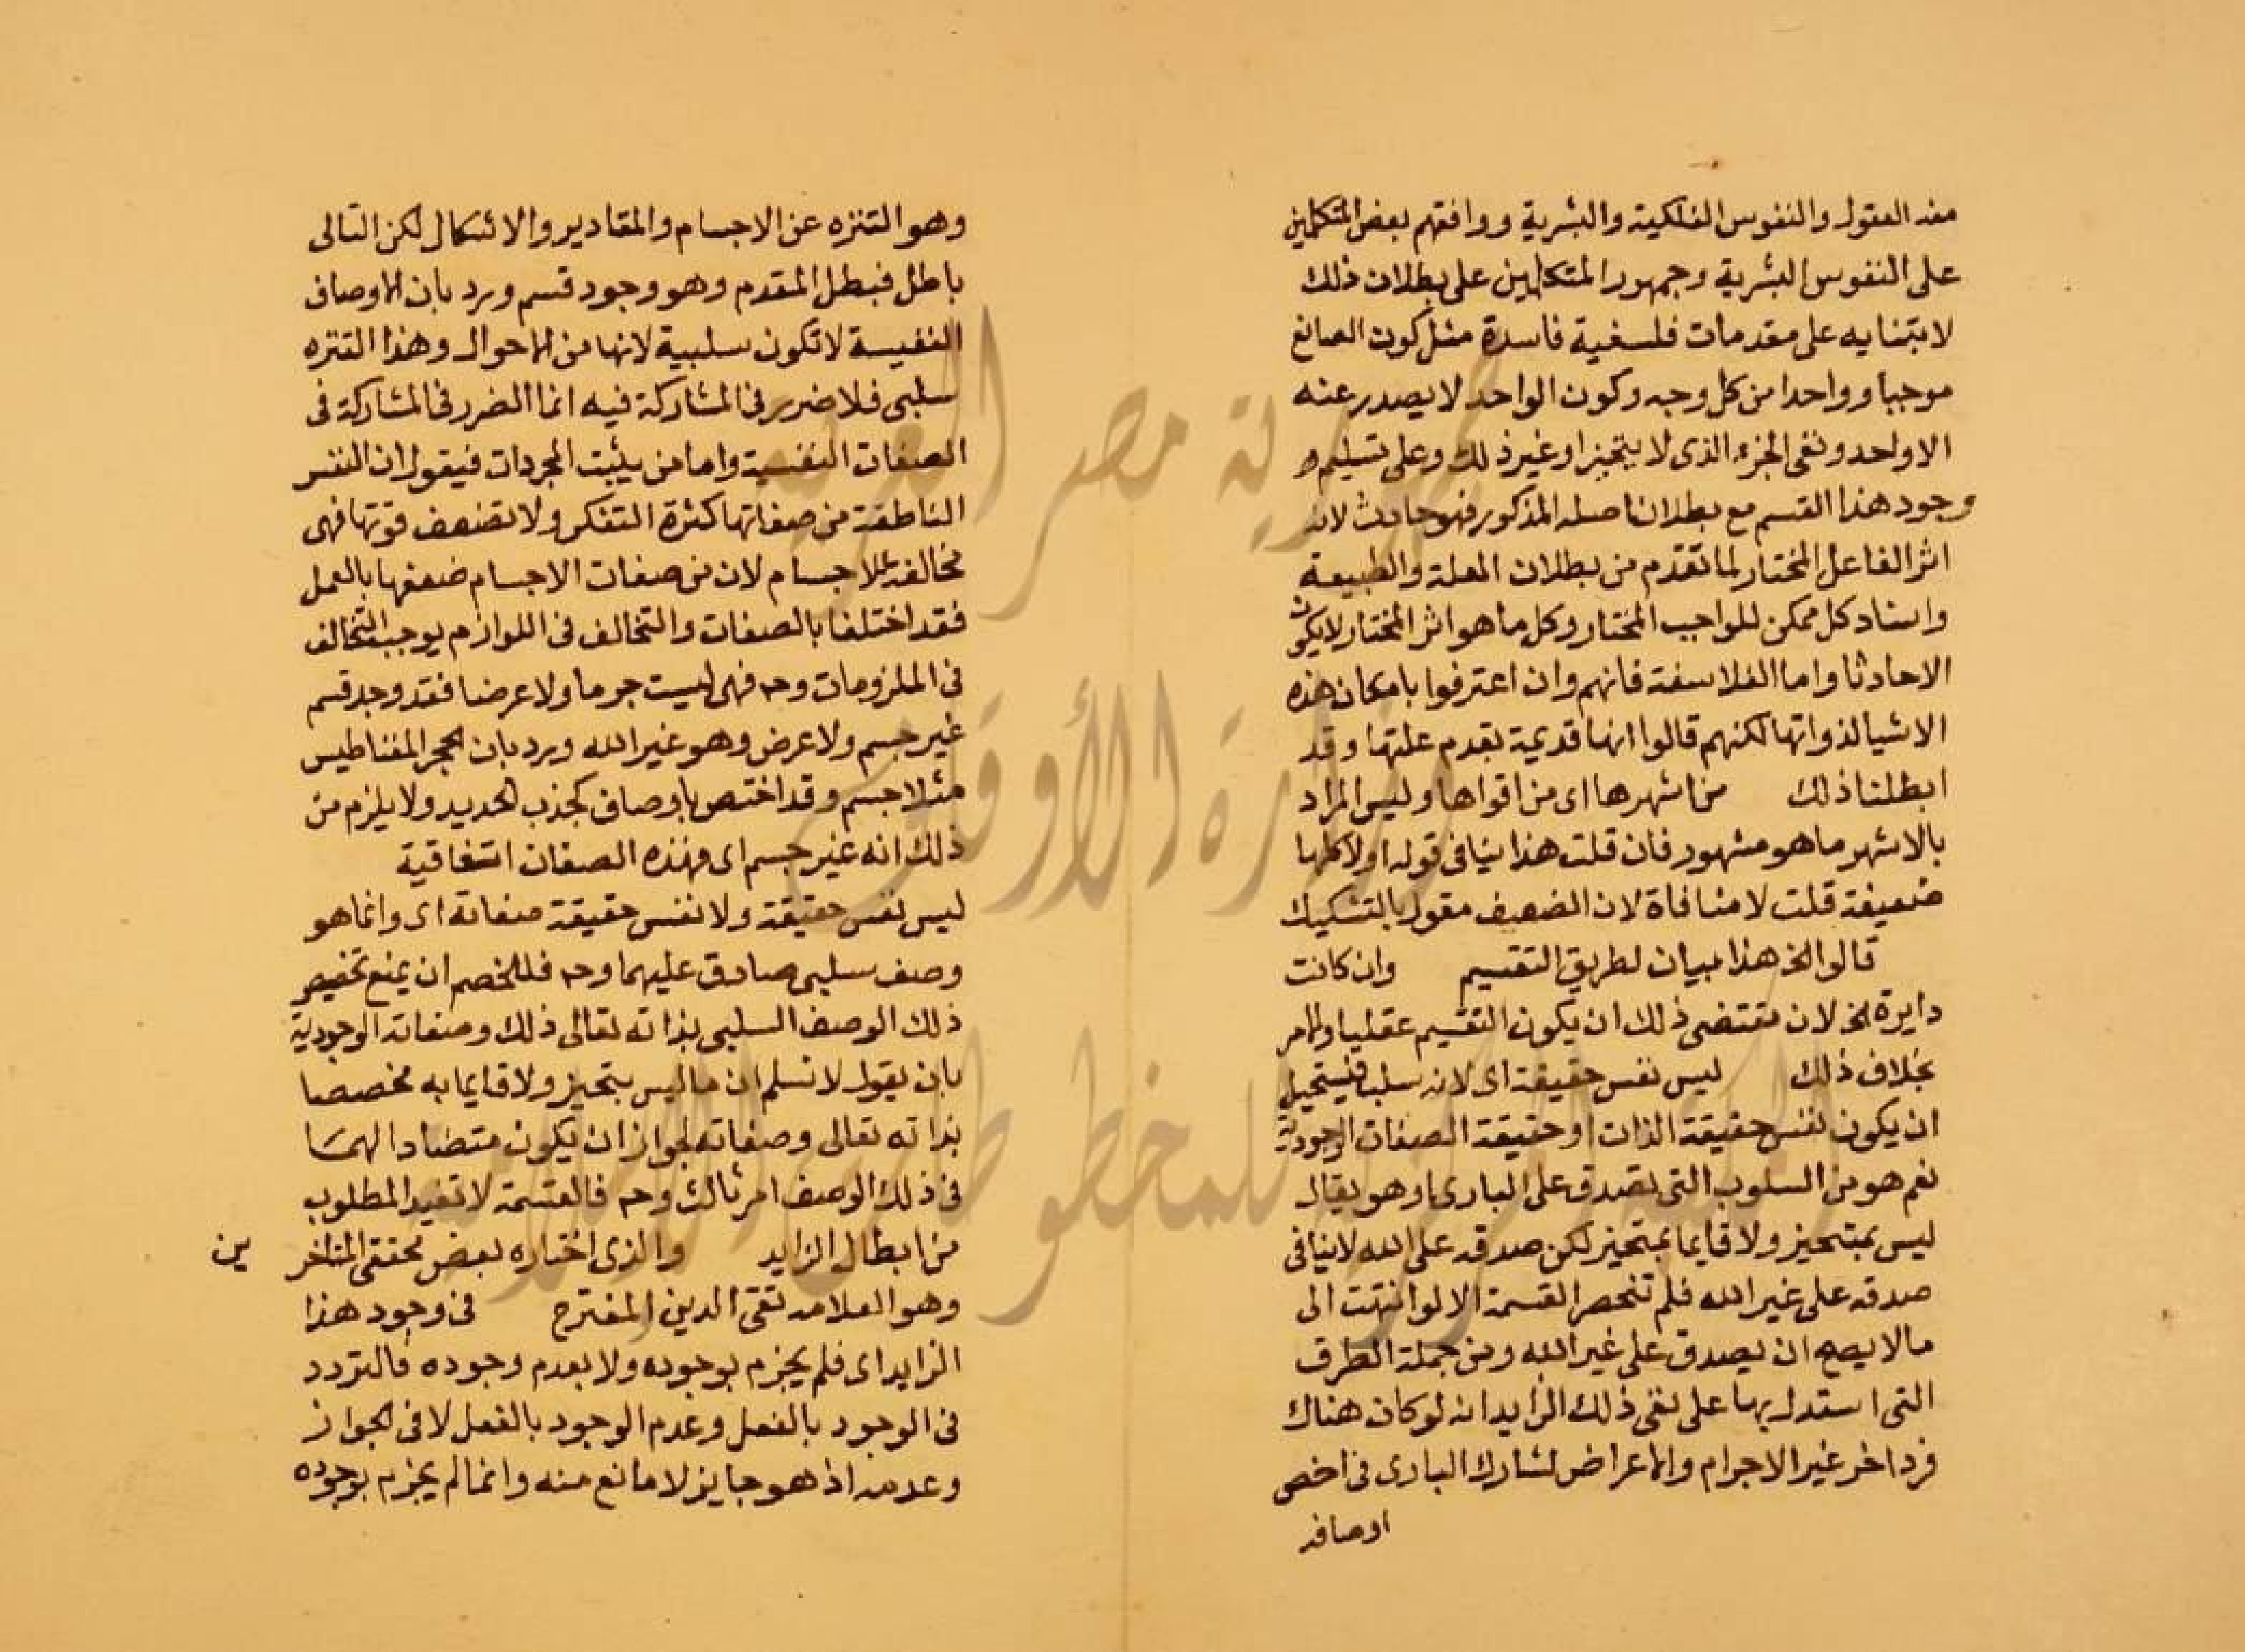 منه العقول والنفوس الفلكية والبشرية ووافقهم بعض المتكلمين
على النفوس البشرية وجمهور المتكلمين على بطلان ذلك
لابتنايه على مقدمات فلسفية فاسدة مثل كون الصانع
موجبا وواحدا من كل وجه وكون الواحد لا يصدر عنه
الا واحد ونفى الجزء الذى لا يتجيز او غير ذلك وعلى تسليم
وجود هذا القسم مع بطلان اصله المذكور فهو حادث لانه
اثر الفاعل المختار لما تقدم من بطلان العلة والطبيعة
واسناد كل ممكن للواجب المختار وكل ما هو اثر المختار لا يكون
الا حادثا واما الفلاسفة فانهم وان اعترفوا بامكان هذه
الاشيا لذواتها لكنهم قالوا انها قديمة بقدم علتها وقد
ابطلنا ذلك من اشهرها اى من اقواها وليس المراد
بالاشهر ما هو مشهور فان قلت هذا ينافى قوله اولا كلها
ضعيفة قلت لا منافاة لان الضعيف مقول بالتشكيك
قالوا الخ هذا بيان لطريق التقسيم وان كانت
دايرة الخ لان مقتضى ذلك ان يكون التقسيم عقليا والامر
بخلاف ذلك ليس نفس حقيقة اى لانه سلب فيستحيل
ان يكون نفس حقيقة الذات او حقيقة الصفات الوجودية
نعم هو من السلوب التى تصدق على البارى وهو يقال
ليس بمتحيز ولا قايما بمتحيز لكن صدقه على الله لا ينافى
صدقه على غير الله فلم تنحصر القسمة الا لو انتهت الى
ما لا يصح ان يصدق على غير الله ومن جملة الطرق
التى استدل بها على نفى ذلك الزايد انه لو كان هناك
فرد اخر غير الاجرام والاعراض لشارك البارى فى اخص
اوصافه
وهو التنزه عن الاجسام والمقادير والاشكال لكن التالى
باطل فبطل المقدم وهو وجود قسم ويرد بان الاوصاف
النفيسة لا تكون سلبية لانها من الاحوال وهذا التنزه
سلبى فلا ضرر فى المشاركة فيه انما الضرر فى المشاركة فى
الصفات النفسية واما من يثبت المجردات فيقول ان النفس
الناطقة من صفاتها كثرة التفكر ولا تضعف قوتها فهى
مخالفة للاجسام لان من صفات الاجسام ضعفها بالعمل
فقد اختلفا بالصفات والتخالف فى اللوازم يوجب التخالف
فى الملزومات وحه فهى ليست جرما ولا عرضا فقد وجد قسم
غير جسم ولا عرض وهو غير الله ويرد بان الحجر المغناطيس
مثلا جسم وقد اختص باوصاف كجذب الحديد ولا يلزم من
ذلك انه غير جسم اى فهذه الصفات اتفاقية
ليس نفس حقيقة ولا نفس حقيقة صفاته اى وانما هو
وصف سلبى صادق عليهما وحه فللخصم ان يمنع تخصيص
ذلك الوصف السلبى بذاته تعالى ذلك وصفاته الوجودية
بان يقول لا نسلم ان ما ليس بتحيز ولا قايما به مخصصا
بذاته تعالى وصفاته لجواز ان يكون متضادا لهما
فى ذلك الوصف امر ثالث وحه فالقسمة لا تفيد المطلوب
من ابطال الزايد والذى اختاره بعض محققى المتاخرين
وهو العلامه تقى الدين المقترح فى وجود هذا
الزايد اى فلم يجزم بوجوده ولا بعدم وجوده فالتردد
فى الوجود بالفعل وعدم الوجود بالفعل لا فى الجواز
وعدمه اذ هو جايز لا مانع منه وانما لم يجزم بوجوده